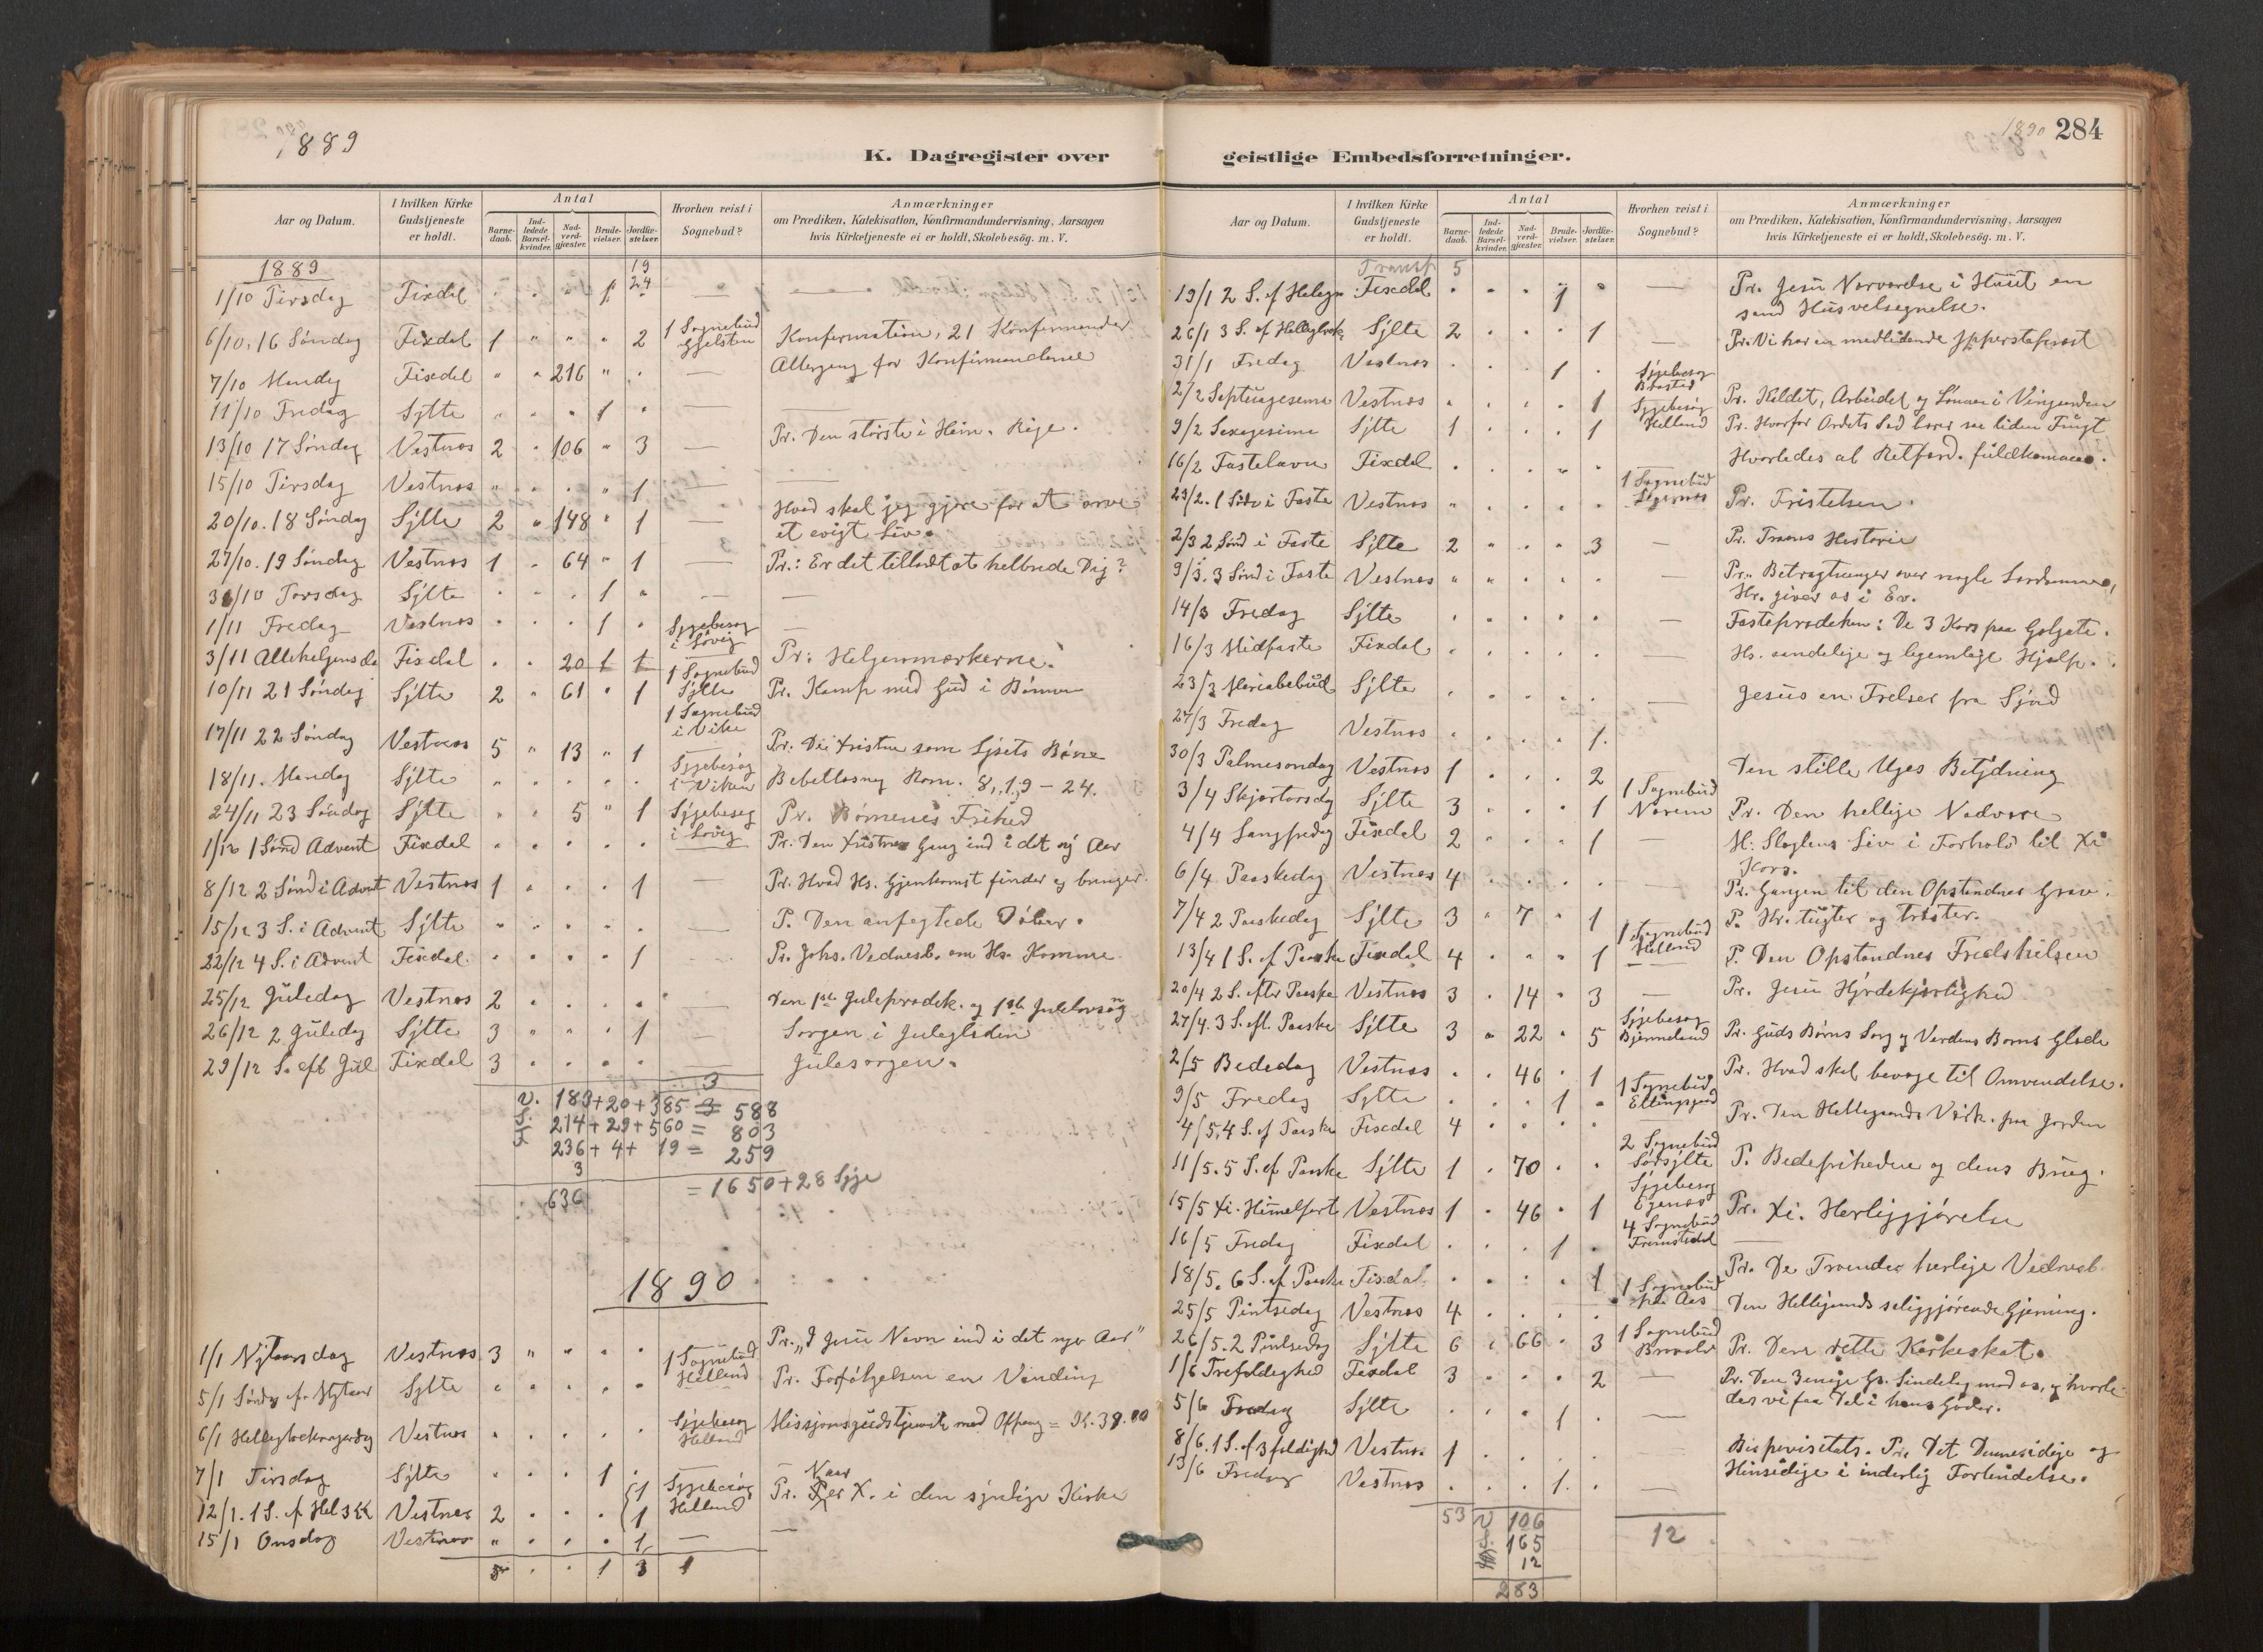 1889
K. Dagregister over
Aar og Datum.
I hvilken Kirke Gudstjeneste er holdt.
Antal
Barnedaab.
Indledede Barselkvinder.
Nadverdgjæster.
Brudevielser.
Jordfæstelser.
Hvorhen reist i Sognebud?
Anmærkninger
om Prædiken, Katekisation, Konfirmandundervisning, Aarsagen
hvis Kirketjeneste ei er holdt, Skolebesög. m. V.
1889 19
1/10 Tirsdag Fixdal " " " 1 24 —
6/10. 16 Søndag Fixdal 1 " " " 2 1 Sognebud Gjelsten Konfirmation, 21 Konfirmander
7/10 Mandag Fixdal " " 216 " . — Altergang for Konfirmanderne
11/10 Fredag Sylte " " " 1 " —
13/10 17 Søndag Vestnæs 2 " 106 " 3 — Pr. Den største i Him. Rige.
15/10 Tirsdag Vestnæs " " . " 1 —
20/10. 18 Søndag Sylte 2 " 148 " 1 — Hvad skal jeg gjøre for at arve
et evigt Liv.
27/10. 19 Søndag Vestnæs 1 " 64 " 1 — Pr.: Er det tilladt at helbrede Dig?
31/10 Torsdag Sylte " " . 1 " — —
1/11 Fredag Vestnæs " . . 1 . Sygebesøg i Løvig —
3/11 Allehelgensda Fixdal . . 20 1 1 1 Sognebud Sylte Pr: Helgenmærkerne.
10/11 21 Søndag Sylte 2 " 61 " 1 1 Sognebud i Vike Pr. Kamp med Gud i Bønnen
17/11 22 Søndag Vestnæs 5 " 13 " 1 — Pr. De Kristne som Lysets Børn
18/11. Mandag Sylte " " . . . Sygebesøg i Viken Bibellæsning Rom. 8, 19 - 24.
24/11 23 Søndag Sylte " " 5 " 1 Sygebesøg i Løvig Pr. Børnenes Frihed
1/12 1 Sønd Advent Fixdal " . . . . — Pr. Den Kristnes Gang ind i det ny Aar
8/12 2 Sønd i Advent Vestnæs 1 . . . 1 — Pr. Hvad Hs. Gjenkomst finder og bringer.
15/12 3 S. i Advent Sylte " . . . . — P. Den anfegtede Døber.
22/12 4 S. i Advent Fixdal . . . . 1 — Pr. Johs. Vidnesb. om Hs. Komme.
25/12 Juledag Vestnæs 2 . . . . — Den 1ste Juleprædik. og 1ste Julelovsang
26/12 2 Juledag Sylte 3 " . " 1 — Sorgen i Juleglæden
29/12 S. eft Jul Fixdal 3 . . . . — Julesorgen.
3
V. 183+20+385 = 588
S. 214+29+560 = 803
F. 236+ 4+ 19 = 259
3
636 = 1650+28 Syge
1890
1/1 Nytaarsdag Vestnæs 3 " " . . Pr. „I Jesu Navn ind i det nye Aar"
5/1 Søndag ef. Nytaar Sylte . . . . . 1 Sognebud Helland Pr. Forfølgelsen en Vinding
6/1 Helligtrekongersdag Vestnæs . . . . . Sygebesøg Helland Missjonsgudstjeneste med Offring = K. 38.00
7/1 Tirsdag Sylte . . . 1 . —
12/1. 1 S. ef Hel 3 KK Vestnæs 2 . . . 1 Sygebesøg Helland Pr. Naar X. i den synlige Kirke
15/1 Onsdag Vestnæs " . . . 1 — —
5 . . 1 3 1
1890 284
geistlige Embedsforretninger.
Aar og Datum.
I hvilken Kirke Gudstjeneste er holdt.
Antal
Barnedaab.
Indledede Barselkvinder.
Nadverdgjæster.
Brudevielser.
Jordfæstelser.
Hvorhen reist i Sognebud?
Anmærkninger
om Prædiken, Katekisation, Konfirmandundervisning, Aarsagen
hvis Kirketjeneste ei er holdt, Skolebesög. m. V.
Transp 5
19/1 2 S. ef Heligr Fixdal . . . 1 . — Pr. Jesu Nærværelse i Huset en
sand Husvelsegnelse.
26/1 3 S. ef Helligtrek. Sylte 2 . . . 1 — Pr. Vi har en medlidende Ypperstepræst
31/1 Fredag Vestnæs . . . 1 . Sygebesøg
2/2 Septuagesima Vestnæs . . . . 1 Sygebesøg Helland Pr. Kaldet, Arbeidet og Lønnen i Vingården
9/2 Sexagesima Sylte 1 . . . 1 Pr. Hvorfor Ordets Sæd bærer saa liden Frugt
16/2 Fastelavn Fixdal . . . . . Hvorledes al Retfærd. fuldkommes.
23/2. 1 Sønd i Faste Vestnæs " . . . . 1 Sognebud Pr. Fristelsen.
2/3 2 Sønd i Faste Sylte 2 . . . 3 — Pr. Troens Historie
9/3. 3 Sønd i Faste Vestnæs " " . . . — Pr. Betragtninger over nogle Lærdomme,
Hr. giver os i Ev.
14/3 Fredag Sylte . . . . . — Fasteprædiken: De 3 Kors paa Golgata.
16/3 Midfaste Fixdal . . . . . — Hs. aandelige og legemlige Hjælp.
23/3 Mariæbebud Sylte . . . . . — Jesus en Frelser fra Synd
27/3 Fredag Vestnæs . . . . 1.
30/3 Palmesøndag Vestnæs 1 . . . 2 Den stille Uges Betydning
3/4 Skjærtorsdg Sylte 3 . . . 1 1 Sognebud Nærem Pr. Den hellige Nadvere
4/4 Langfredag Fixdal 2 . . . 1 — M. Slegtens Liv i Forhold til Xi
Kors.
6/4 Paaskedag Vestnæs 4 . . . . Pr. Gangen til den Opstandnes Grav.
7/4 2 Paaskedag Sylte 3 " 7 " 1 1 Sognebud Helland P. Hr. tugter og trøster.
13/4 1 S. ef Paaske Fixdal 4 . . . 1 — P. Den Opstandnes Fredshilsen
20/4 2 S. efter Paaske Vestnæs 3 . 14 . 3 — Pr. Jesu Hyrdekjærlighed
27/4. 3 S. eft. Paaske Sylte 3 " 22 . 5 Sygebesøg Bjermeland Pr. Guds Børns Sorg og Verdens Børns Glæde
2/5 Bededag Vestnæs . . 46 . 1 Pr. Hvad skal bevæge til Omvendelse.
9/5 Fredag Sylte . . . 1 . 1 Sognebud Ellingsgaard
4/5, 4 S. ef Paaske Fixdal 4 . . . . Pr. Den Helligaands Virk. paa Jorden
11/5. 5 S. ef Paaske Sylte 1 . 70 . . 2 Sognebud Sørsylte P. Bedefriheden og dens Brug.
15/5 Xi. Himelfart Vestnæs 1 . 46 . 1 Sygebesøg Egenæs Pr. Xi. Herliggjørelse
16/5 Fredag Fixdal . . . 1 . 4 Sognebud Tremstedal —
18/5. 6 S. ef Paaske Fixdal . . . . 1 Pr. De Troendes herlige Vidnesb.
25/5 Pintsedag Vestnæs 4 . . . . 1 Sognebud paa Aas Den Helligaands saliggjørende Gjerning.
26/5. 2 Pintsedag Sylte 6 . 66 . 3 1 Sognebud Pr. Den rette Kirkeskat.
1/6 Trefoldighed Fixdal 3 . . . 2 — Pr. Den 3enige Gs. Sindelag mod os, og hvorle-
des vi faa Del i hans Goder.
5/6 Fredag Sylte . . . 1 . —
8/6. 1 S. ef 3foldighed Vestnæs 1 . . . . Bispevisitats. Pr. Det Dennesidige og
Hinsidige i inderlig Forbindelse.
13/6 Fredag Vestnæs . . . 1. . —
53 V 106 12
S. 165
12
283